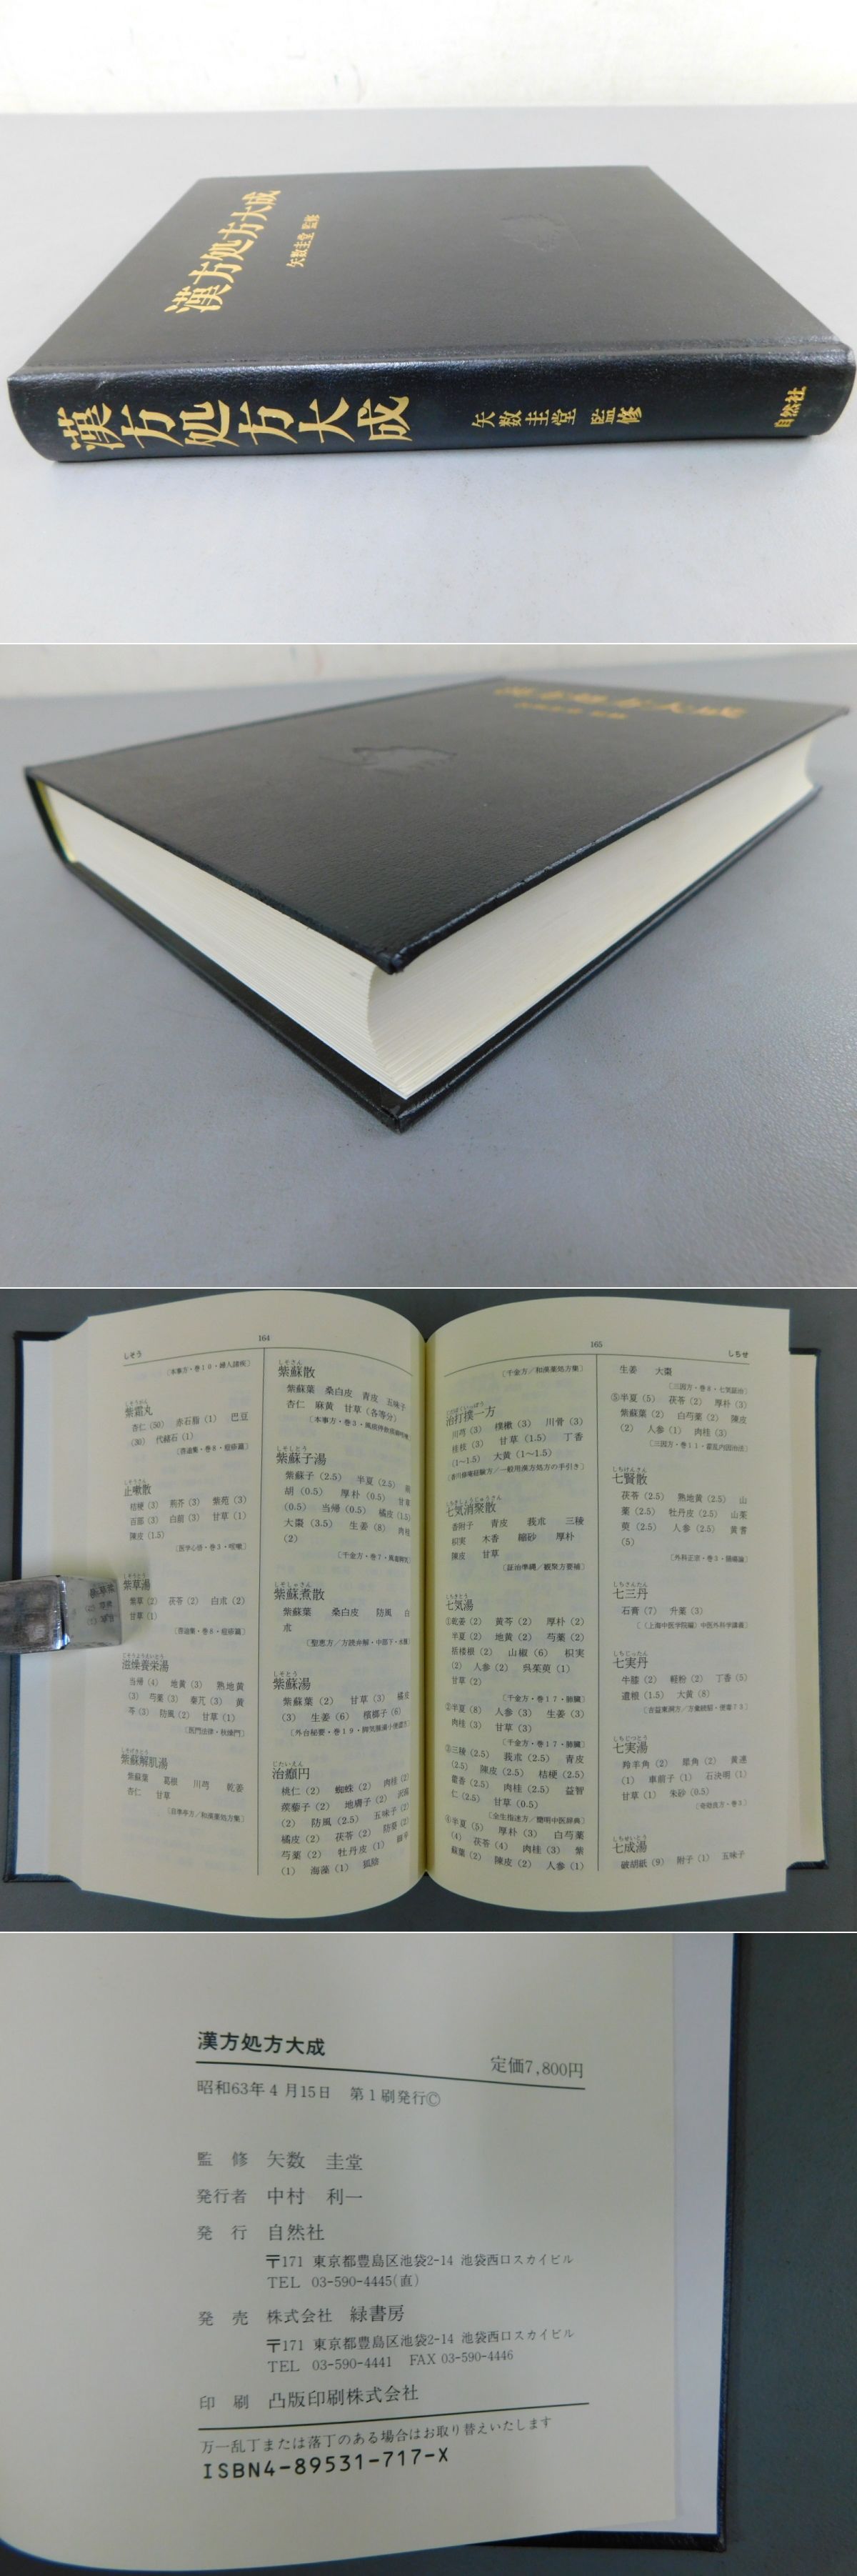 漢方処方大成
矢数圭堂 監修
漢方処方大成
矢数圭堂 監修
自然社
164
しそう
〔本事方・巻10・婦人諸疾〕
紫霜丸
杏仁(50) 赤石脂(1) 巴豆
(30) 代赭石(1)
止嗽散
桔梗(3) 荊芥(3) 紫苑(3)
百部(3) 白前(3) 甘草(1)
陳皮(1.5)
〔医学心悟・巻3・咳嗽〕
紫草湯
紫草(2) 茯苓(2) 白朮(2)
甘草(1)
滋燥養栄湯
当帰(4) 地黄(3) 熟地黄
(3) 芍薬(3) 秦芃(3) 黄
芩(3) 防風(2) 甘草(1)
〔医門法律・秋燥門〕
紫蘇解肌湯
紫蘇葉 葛根 川芎 乾姜
杏仁 甘草
紫蘇散
紫蘇葉 桑白皮 青皮 五味子
杏仁 麻黄 甘草(各等分)
紫蘇子湯
紫蘇子(2.5) 半夏(2.5)
胡(0.5) 厚朴(0.5) 甘草
(0.5) 当帰(0.5) 橘皮(1.5)
大棗(3.5) 生姜(8) 肉桂
(2)
紫蘇煮散
紫蘇葉 桑白皮 防風 白
朮
紫蘇湯
紫蘇葉(2) 甘草(3) 橘皮
(3) 生姜(6) 檳榔子(6)
治癲円
桃仁(2) 蜘蛛(2) 肉桂(2)
蒺藜子(2) 地膚子(2)
(2) 防風(2.5) 五味子(2)
橘皮(2) 茯苓(2) 防葵(2)
芍薬(2) 牡丹皮(1)
(1) 海藻(1) 狐陰
165
しちせ
〔千金方/和漢薬処方集〕
治打撲一方
川芎(3) 樸樕(3) 川骨(3)
桂枝(3) 甘草(1.5) 丁香
(1〜1.5) 大黄(1〜1.5)
〔香川修庵経験方/一般用漢方処方の手引き〕
七気消聚散
香附子 青皮 莪朮 三稜
枳実 木香 縮砂 厚朴
陳皮 甘草
〔証治準縄/観聚方要補〕
七気湯
①乾姜(2) 黄芩(2) 厚朴(2)
半夏(2) 地黄(2) 芍薬(2)
栝楼根(2) 山椒(6) 枳実
(2) 人参(2) 呉茱萸(1)
甘草(2)
〔千金方・巻17・肺臓〕
②半夏(8) 人参(3) 生姜(3)
肉桂(3) 甘草(3)
〔千金方・巻17・肺臓〕
③三稜(2.5) 莪朮(2.5) 青皮
(2.5) 陳皮(2.5) 桔梗(2.5)
藿香(2.5) 肉桂(2.5) 益智
仁(2.5) 甘草(0.5)
〔全生指迷方/簡明中医辞典〕
④半夏(5) 厚朴(3) 白芍薬
(4) 茯苓(4) 肉桂(3) 紫
蘇葉(2) 陳皮(2) 人参(1)
生姜 大棗
〔三因方・巻8・七気証治〕
⑤半夏(5) 茯苓(2) 厚朴(3)
紫蘇葉(2) 白芍薬(2) 陳皮
(2) 人参(1) 肉桂(3)
〔三因方・巻11・霍乱内因治法〕
七賢散
茯苓(2.5) 熟地黄(2.5) 山
薬(2.5) 牡丹皮(2.5) 山茱
萸(2.5) 人参(2.5) 黄耆
(5)
〔外科正宗・巻3・腸癰論〕
七三丹
石膏(7) 升薬(3)
〔(上海中医学院編)中医外科学講義〕
七実丹
牛膝(2) 軽粉(2) 丁香(5)
遺根(1.5) 大黄(8)
〔吉益東洞方/方彙続貂・便毒73〕
七実湯
羚羊角(2) 犀角(2) 黄連
(1) 車前子(1) 石決明(1)
甘草(1) 朱砂(0.5)
七成湯
破胡紙(9) 附子(1) 五味子
漢方処方大成
定価7,800円
昭和63年4月15日 第1刷発行©
監 修 矢数 圭堂
発行者 中村 利一
発 行 自然社
〒171 東京都豊島区池袋2-14 池袋西口スカイビル
TEL 03-590-4445(直)
発 売 株式会社 緑書房
〒171 東京都豊島区池袋2-14 池袋西口スカイビル
TEL 03-590-4441 FAX 03-590-4446
印 刷 凸版印刷株式会社
万一乱丁または落丁のある場合はお取り替えいたします
ISBN4-89531-717-X